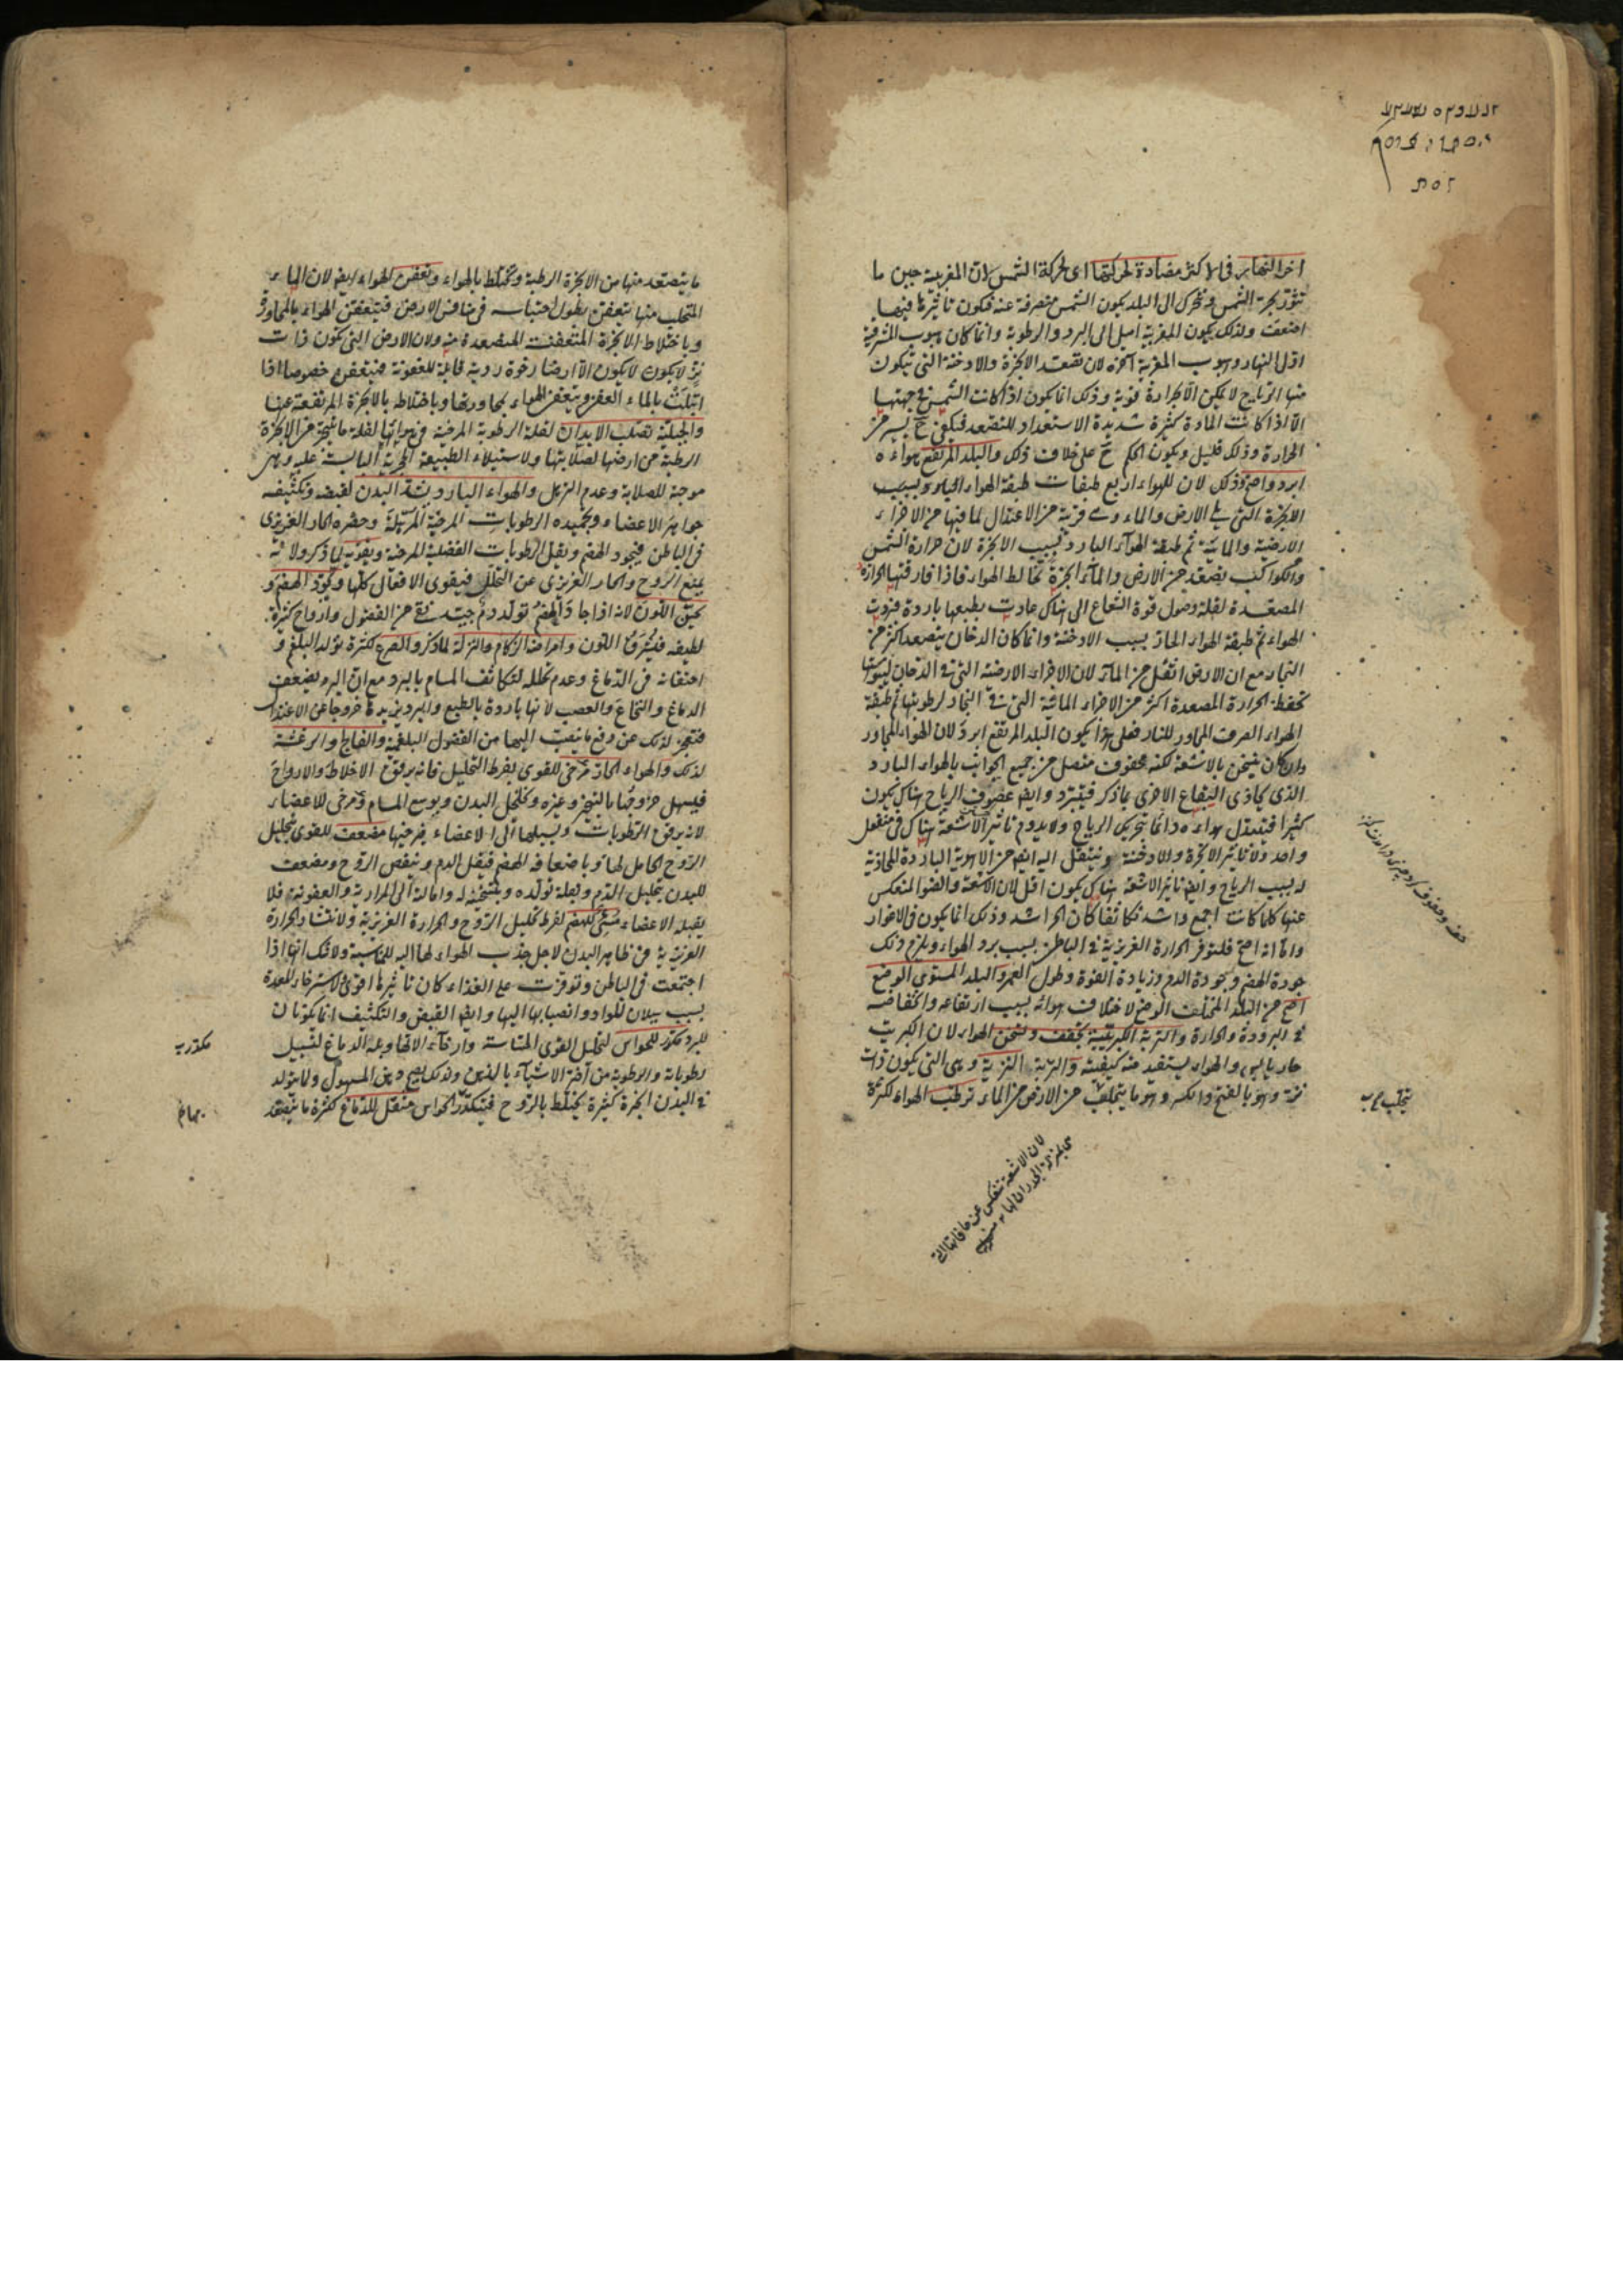 اخر النهار فى الاكثر مضادة لحركتها اى لحركة الشمس لان المغربية حين ما
الشمس وتتحرك الى البلد يكون الشمس منصرفة عنه فيكون تاثيرها فيها
اضعف ولذلك يكون المغربية اميل الى البرد والرطوبة وانما كان هبوب المشرقية
اول النهار وهبوب المغربية آخره لان تصعد الابخرة والادخنة التى يتكون
منها الرياح لا يمكن الا بحرارة قوية وذلك انما يكون اذا كانت الشمس فى جهتها
الا اذا كانت المادة كثيرة شديدة الاستعداد للتصعد فيكفى ح يسير من
الحرارة وذلك قليل ويكون الحكم ح على خلاف ذلك والبلد المرتفع هواءه
ابرد واصح وذلك لان للهواء اربع طبقات طبقة الهواء المجاور بسبب
الابخرة التى على الارض والماء وهى قريبة من الاعتدال لما فيها من الاجزاء
الارضية والمائية ثم طبقة الهواء البارد بسبب الابخرة لان حرارة الشمس
والكواكب يصعد من الارض والماء ابخرة تخالط الهواء فاذا فارقتها الحرارة
المصعدة لقلة وصول قوة الشعاع الى هناك عادت بطبعها باردة فبردت
الهواء ثم طبقة الهواء الحار بسبب الادخنة وانما كان الدخان يتصعد اكثر من
البخار مع ان الارض اثقل من الماء لان الاجزاء الارضية التى فى الدخان ليبوستها
تحفظ الحرارة المصعدة اكثر من الاجزاء المائية التى فى البخار لرطوبتها ثم طبقة
الهواء الصرف المجاور للنار فعلى هذا يكون البلد المرتفع ابرد لان الهواء المجاور
وان كان يتسخن بالاشعة لكنه محفوف متصل من جميع الجوانب بالهواء البارد
الذى يحاذى البقاع الاخرى بما ذكر فيتبرد وايضا عصوف الرياح هناك يكون
كثيرا فيتبدل هواءه دائما بتحريك الرياح ولا يدوم تاثير الاشعة هناك فى منفعل
واحد ولا تاثير الابخرة والادخنة وينتقل اليه ايضا من الاهوية الباردة المحاذية
له بسبب الرياح وايضا تاثير الاشعة هناك يكون اقل لان الاشعة والضوء المنعكس
عنها كلما كانت اجمع واشد تكاثفا كان الحر اشد وذلك انما يكون فى الاغوار
واما انه اصح فلتوفر الحرارة الغريزية فى الباطن بسبب برد الهواء ويلزم ذلك
جودة الهضم وجودة الدم وزيادة القوة وطول العمر والبلد المستوى الوضع
اصح من البلد المختلف الوضع لاختلاف هوائه بسبب ارتفاعه وانخفاضه
فى البرودة والحرارة والتربة الكبريتية تجفف وتسخن الهواء لان الكبريت
حار يابس والهواء يستفيد منه كيفيته والتربة النزية وهى التى يكون ذات
نزة وهو بالفتح والكسر وهو ما يتحلب من الارض من الماء ترطب الهواء لكثرة
لان الاشعة تنعكس عن
ما يتصعد منها من الابخرة الرطبة وتختلط بالهواء وتعفن الهواء ايضا لان الماء
المتحلب منها يتعفن بطول احتباسه فى منافس الارض فيتعفن الهواء بالمجاورة
وباختلاط الابخرة المتعفنة المتصعدة منه ولان الارض التى تكون ذات
نز لا يكون الا ارضا رخوة ردية قابلة للعفونة فيتعفن خصوصا اذا
ابتلت بالماء العفن ويتعفن الهواء بمجاورتها وباختلاطه بالابخرة المرتفعة عنها
والجبلية تصلب الابدان لقلة الرطوبة المرخية فى هوائها لقلة ما يتبخر من الابخرة
الرطبة من ارضها لصلابتها ولاستيلاء الطبيعة الحجرية اليابسة عليه وهى
موجبة للصلابة وعدم الترهل والهواء البارد يشد البدن لقبضه وتكثيفه
جواهر الاعضاء وتجميده الرطوبات المرخية المرهلة وحصره الحار الغريزى
فى الباطن فيجود الهضم ويقل الرطوبات الفضلية المرخية ويقويه لما ذكر ولانه
يمنع الروح والحار الغريزى عن التحلل فيقوى الافعال كلها ويجود الهضم و
يحسن اللون لانه اذا جاد الهضم تولد دم جيد نقى من الفضول وارواح كثيرة
لطيفه فيشرق اللون وامراضه الزكام والنزلة لما ذكر والصرع لكثرة تولد البلغم و
احتقانه فى الدماغ وعدم تحلله لتكاثف المسام بالبرد مع ان البرد يضعف
الدماغ والنخاع والعصب لانها باردة بالطبع والبرد يزيدها خروجا عن الاعتدال
فتعجز لذلك عن دفع ما ينصب اليها من الفضول البلغمية والفالج والرعشة
لذلك والهواء الحار مرخى للقوى بفرط التحليل فانه يرقق الاخلاط والارواح
فيسهل خروجها بالتبخر وغيره وتخلخل البدن ويوسع المسام ومرخى للاعضاء
لانه يرقق الرطوبات ويسيلها الى الاعضاء فيرخيها مضعف للقوى بتحليل
الروح الحامل لها وباضعافه الهضم فيقل الدم وينقص الروح ومضعف
للبدن بتحليل الدم وبقلة تولده وبتسخينه له وامالته الى المرارية والعفونة فلا
يقبله الاعضاء مسىء للهضم لفرط تحليل الروح والحرارة الغريزية ولانتشار الحرارة
الغريزية فى ظاهر البدن لاجل جذب الهواء لها اليه للمناسبة ولا شك انها اذا
اجتمعت فى الباطن وتوفرت على الغذاء كان تاثيرها اقوى ولاسترخاء المعدة
بسبب سيلان المواد وانصبابها اليها وايضا القبض والتكثيف انما يكونان
للبرد مكدر للحواس لتحليل القوى الحساسة وارخاء الاتها وملء الدماغ لتسييل
رطوباته والرطوبة من
فى البدن ابخرة كثيرة تختلط بالروح فيتكدر الحواس مثقل للدماغ لكثرة ما يتصعد